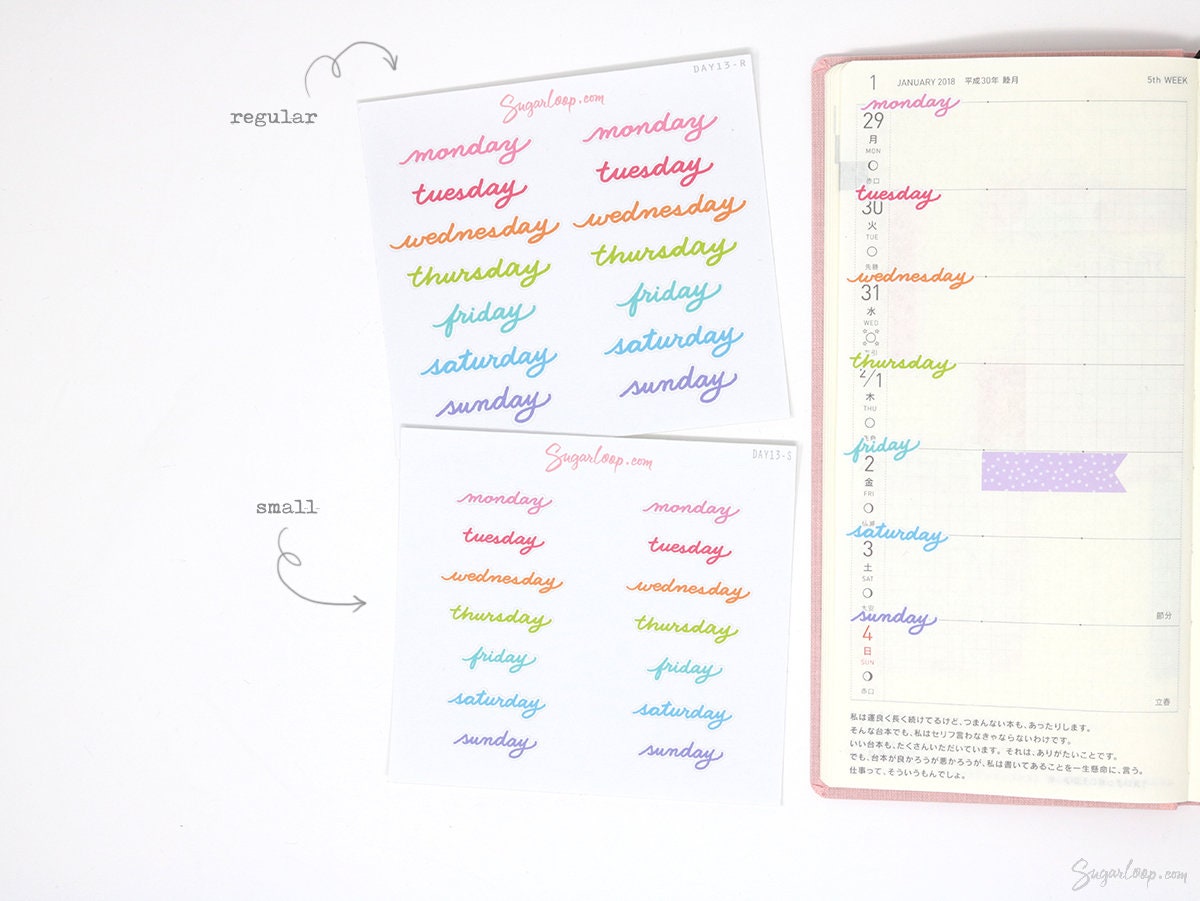 regular
DAY13-R
Sugarloop.com
monday monday
tuesday tuesday
wednesday wednesday
thursday thursday
friday friday
saturday saturday
sunday sunday
small
DAY13-S
Sugarloop.com
monday monday
tuesday tuesday
wednesday wednesday
thursday thursday
friday friday
saturday saturday
sunday sunday
1 JANUARY 2018 平成30年 睦月 5th WEEK
monday
29
月
MON
赤口
tuesday
30
火
TUE
先勝
wednesday
31
水
WED
thursday
2/1
木
THU
friday
2
金
FRI
仏滅
saturday
3
土
SAT
大安
節分
sunday
4
日
SUN
赤口
立春
私は運良く長く続けてるけど、つまんない本も、あったりします。
そんな台本でも、私はセリフ言わなきゃならないわけです。
いい台本も、たくさんいただいています。それは、ありがたいことです。
でも、台本が良かろうが悪かろうが、私は書いてあることを一生懸命に、言う。
仕事って、そういうもんでしょ。
Sugarloop.com